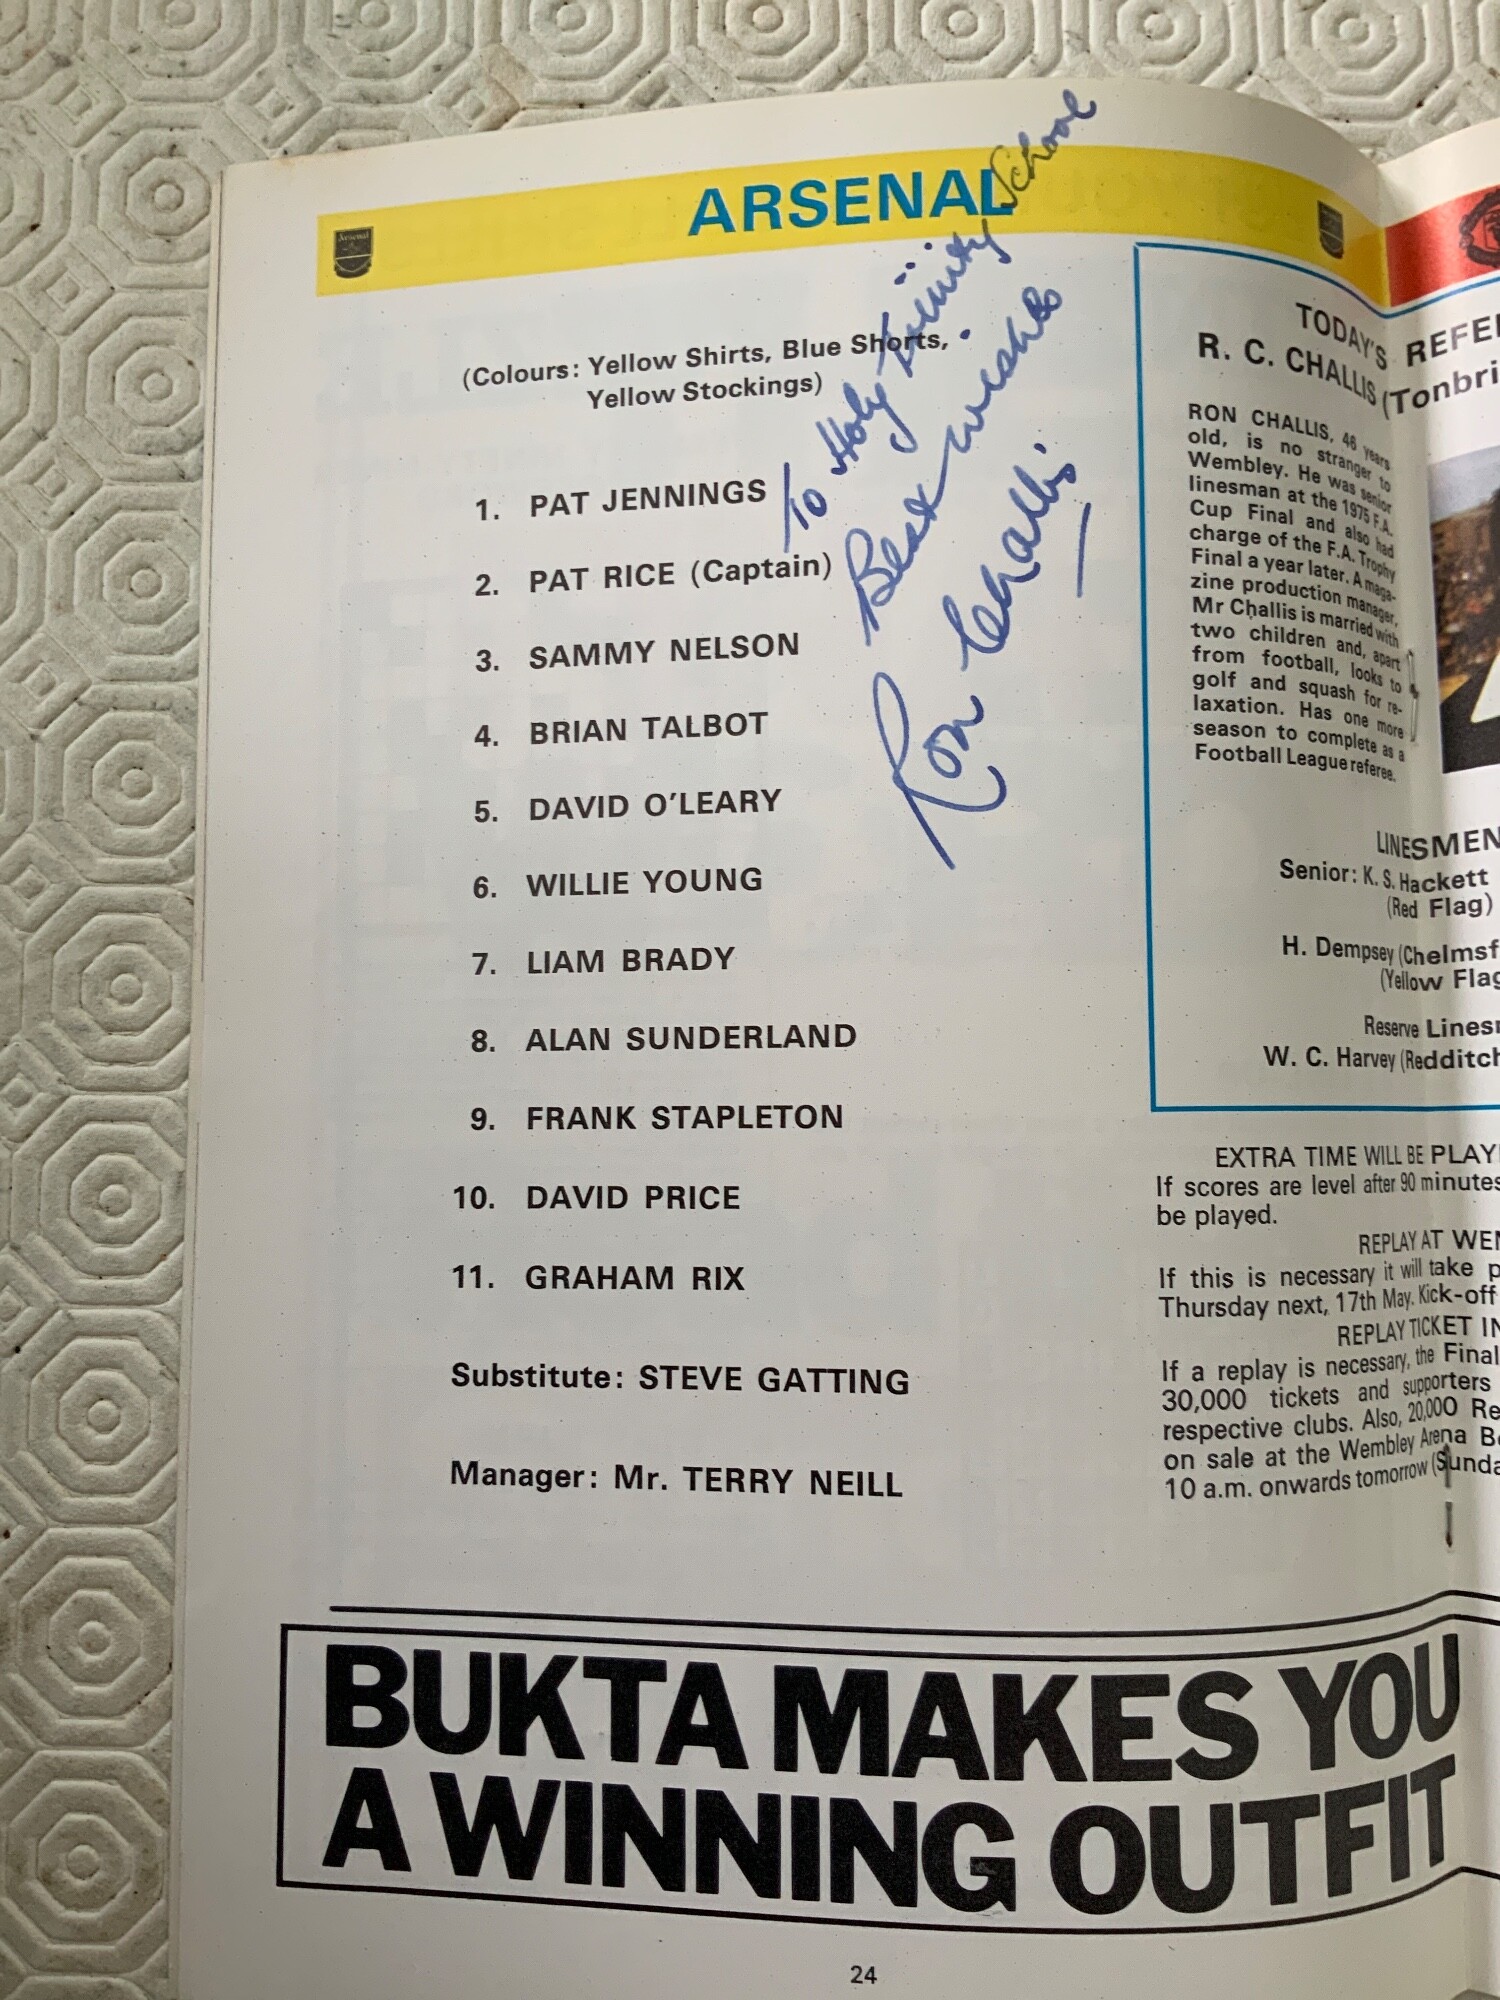 ARSENAL
Arsenal
(Colours: Yellow Shirts, Blue Shorts,
Yellow Stockings)
To Holy Trinity School
Best wishes
Ron Challis
1. PAT JENNINGS
2. PAT RICE (Captain)
3. SAMMY NELSON
4. BRIAN TALBOT
5. DAVID O'LEARY
6. WILLIE YOUNG
7. LIAM BRADY
8. ALAN SUNDERLAND
9. FRANK STAPLETON
10. DAVID PRICE
11. GRAHAM RIX
Substitute: STEVE GATTING
Manager: Mr. TERRY NEILL
TODAY'S REFE
R. C. CHALLIS (Tonbri
RON CHALLIS, 46 years
old, is no stranger to
Wembley. He was senior
linesman at the 1975 F.A.
Cup Final and also had
charge of the F.A. Trophy
Final a year later. A maga-
zine production manager,
Mr Challis is married with
two children and, apart
from football, looks to
golf and squash for re-
laxation. Has one more
season to complete as a
Football League referee.
LINESMEN
Senior: K. S. Hackett
(Red Flag)
H. Dempsey (Chelmsf
(Yellow Flag
Reserve Lines
W. C. Harvey (Redditch
EXTRA TIME WILL BE PLAY
If scores are level after 90 minutes
be played.
REPLAY AT WE
If this is necessary it will take p
Thursday next, 17th May. Kick-off
REPLAY TICKET IN
If a replay is necessary, the Final
30,000 tickets and supporters
respective clubs. Also, 20,000 Re
on sale at the Wembley Arena B
10 a.m. onwards tomorrow (Sunda
BUKTA MAKES YOU
A WINNING OUTFIT
24